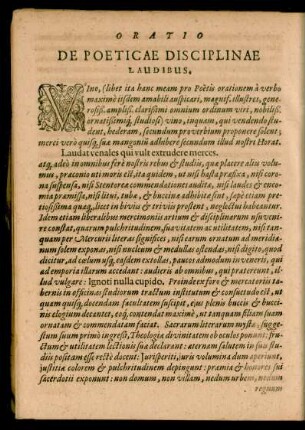 ORATIO
DE POETICAE DISCIPLINAE
LAUDIBUS.
Vino, (libet ita hanc meam pro Poëtis orationem à verbo
maximè iisdem amabili auspicari, magnif. illustres, gene-
rosiss. ampliss. clarissimi omnium ordinum viri, nobiliss.
ornatissimiq́; studiosi) vino, inquam, qui vendendo stu-
dent, hederam, secundum proverbium proponere solent;
merci verò quisq́; sua mangonia adhibere secundum illud nostri Horat.
Laudat venales qui vult extrudere merces.
atq́; adeò in omnibus ferè nostris rebus & studiis, quæ placere aliis volu-
mus, præconio uti moris est, ita quidem, ut nisi hasta præfixa, nisi coro-
na suspensa, nisi Stentorea commendationes audita, nisi laudes & enco-
mia præmissa, nisi litui, tubæ, & buccinæ adhibitæ sint, sæpè etiam pre-
tiosissima quæq́; licet in brevi & triviis præsent, neglectui habeantur.
Idem etiam liberalibus mercimoniis artium & disciplinarum usu veni-
re constat, quarum pulchritudinem, suavitatem ac utilitatem, nisi tan-
quam per Mercurii literas significes, nisi earum ornatum ad meridia-
num solem exponas, nisi nucleum & medullas ostendas, nisi digito, quod
dicitur, ad cælum usq́; easdem extollas, paucos admodum invenies, qui
ad emporia istarum accedant: audieris ab omnibus, qui prætereunt, il-
lud vulgare: Ignoti nulla cupido. Proinde exsure & mercatoris ta-
bernis in officinas studiorum tractum institutum & consuetudo est, ut
quam quisq́; docendam facultatem suscipit, ejus plenis buccis & bucci-
nis elogium decantet, eoq́; contendat maximè, ut tanquam filiam suam
ornatam & commendatam faciat. Sacrarum literarum mysta, sugge-
stum suum primò ingressi, Theologiæ divinitatem ob oculos ponunt: fru-
ctum & utilitatem lectionis suæ declarant: æternam salutem in suis stu-
diis positam esse rectè docent: Jurisperiti, juris volumina dum aperiunt,
justitiæ colorem & pulchritudinem depingunt: præmia & honores sui
sacerdotis exponunt: non domum, non villam, nedum urbem, nedum
regnum